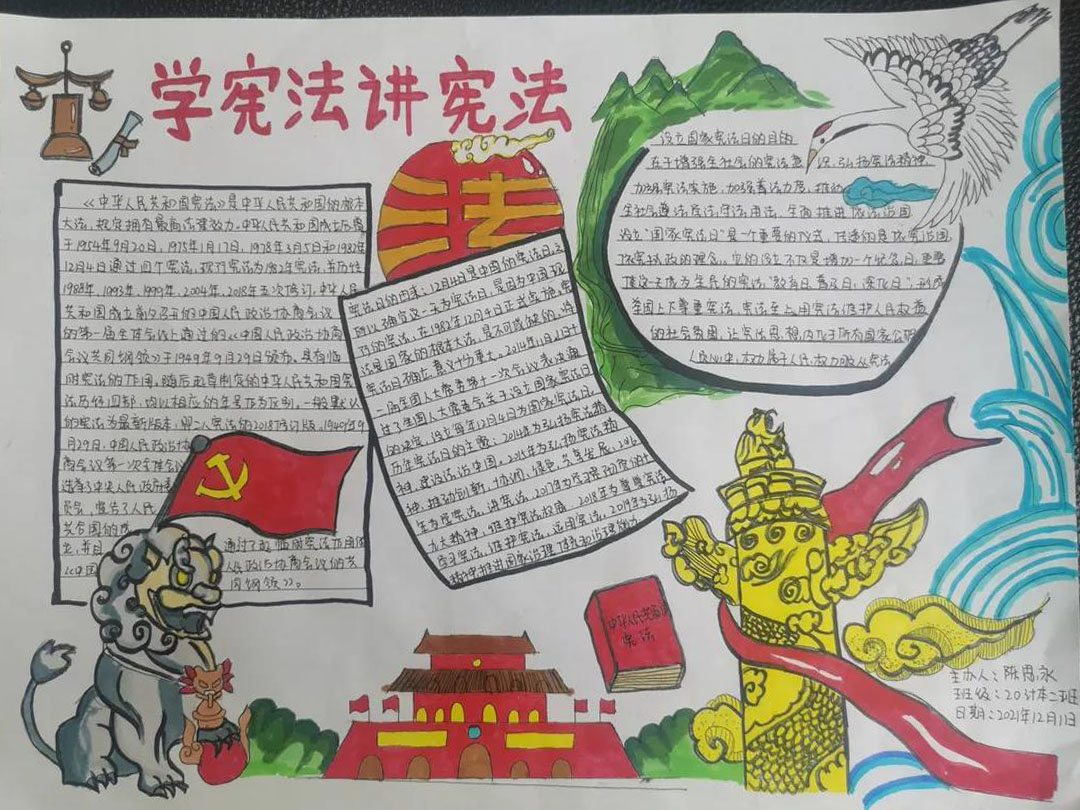 学宪法讲宪法
《中华人民共和国宪法》是中华人民共和国的根本
大法，规定拥有最高法律效力。中华人民共和国成立后曾
于1954年9月20日，1975年1月17日，1978年3月5日和1982年
12月4日通过四个宪法，现行宪法为1982年宪法，并历经
1988年、1993年、1999年、2004年、2018年五次修订。中华人民
共和国成立前召开的中国人民政治协商会议
的第一届全体会议上通过的《中国人民政治协商
会议共同纲领》于1949年9月29日颁布，具有临
时宪法的作用。随后
法历经四部，均以相应的年号作为区别，一般默认
的宪法为最新版本
月29日，中国人民政治协
商会议第一次全体会议
选举了中央人民政府委
员会，宣告了人民
共和国的成
立，并且 通过了起临时宪法作用的
《中国 人民政治协商会议的共
同纲领》。
法
宪法日的由来：12月4日是中国的宪法日，之
所以确定这一天为宪法日，是因为中国现
行的宪法，在1982年12月4日正式实施，宪
法是国家的根本大法，是不可或缺的，将
宪法日确立意义十分重大。2014年11月1日十
二届全国人大常委第十一次会议表决通
过了全国人大常委会关于设立国家宪法日
的决定，设立每年12月4日为国家宪法日。
历年宪法日的主题：2014年为弘扬宪法精
神，建设法治中国。2015年为弘扬宪法精
神，推动创新、协调、绿色、共享发展。2016
年为学宪法，讲宪法。2017年为学习贯彻党的十
九大精神，维护宪法权威。2018年为尊崇宪法
学习宪法，维护宪法，运用宪法。2019年为弘扬
精神推进国家治理体系和治理能力
设立国家宪法日的目的
在于增强全社会的宪法意识、弘扬宪法精神
加强宪法实施，加强普法力度，推动
全社会遵法学法守法用法，全面推进依法治国
设立“国家宪法日”是一个重要的仪式，传递的是依宪治国，
依宪执政的理念。它的设立不仅是增加一个纪念日，更要
使这一天成为全民的宪法“教育日、普及日、深化日”，形成
举国上下尊重宪法、宪法至上、用宪法维护人民权益
的社会氛围。让宪法思想内化于所有国家公民
人民心中，权力属于人民，权力服从宪法
中华人民共和国
宪法
主办人：陈思永
班级：20计本二班
日期：2021年12月1日